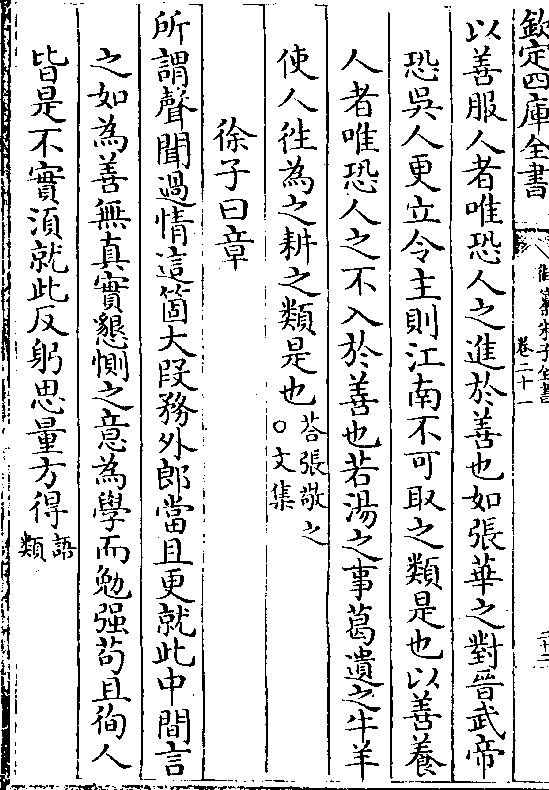 欽定四庫全書
御纂朱子全書
卷二十一
以善服人者唯恐人之進於善也如張華之對晉武帝
恐吳人更立令主則江南不可取之類是也以善養
人者唯恐人之不入於善也若湯之事葛遺之牛羊
使人徃為之耕之類是也答張敬之○文集
徐子曰章
所謂聲聞過情這箇大段務外郎當且更就此中間言
之如為善無真實懇惻之意為學而勉强苟且徇人
皆是不實須就此反躬思量方得語類